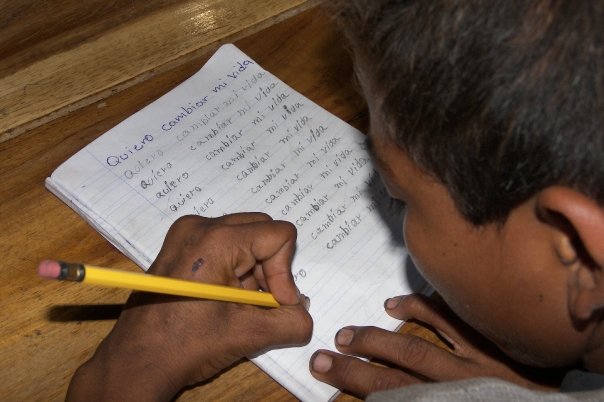 Quiero cambiar mi vida
quiero cambiar mi vida
quiero cambiar mi vida
quiero cambiar mi vida
quiero cambiar mi vida
cambiar mi vida
cambiar mi vida
cambiar mi vida
cambiar mi
cambiar